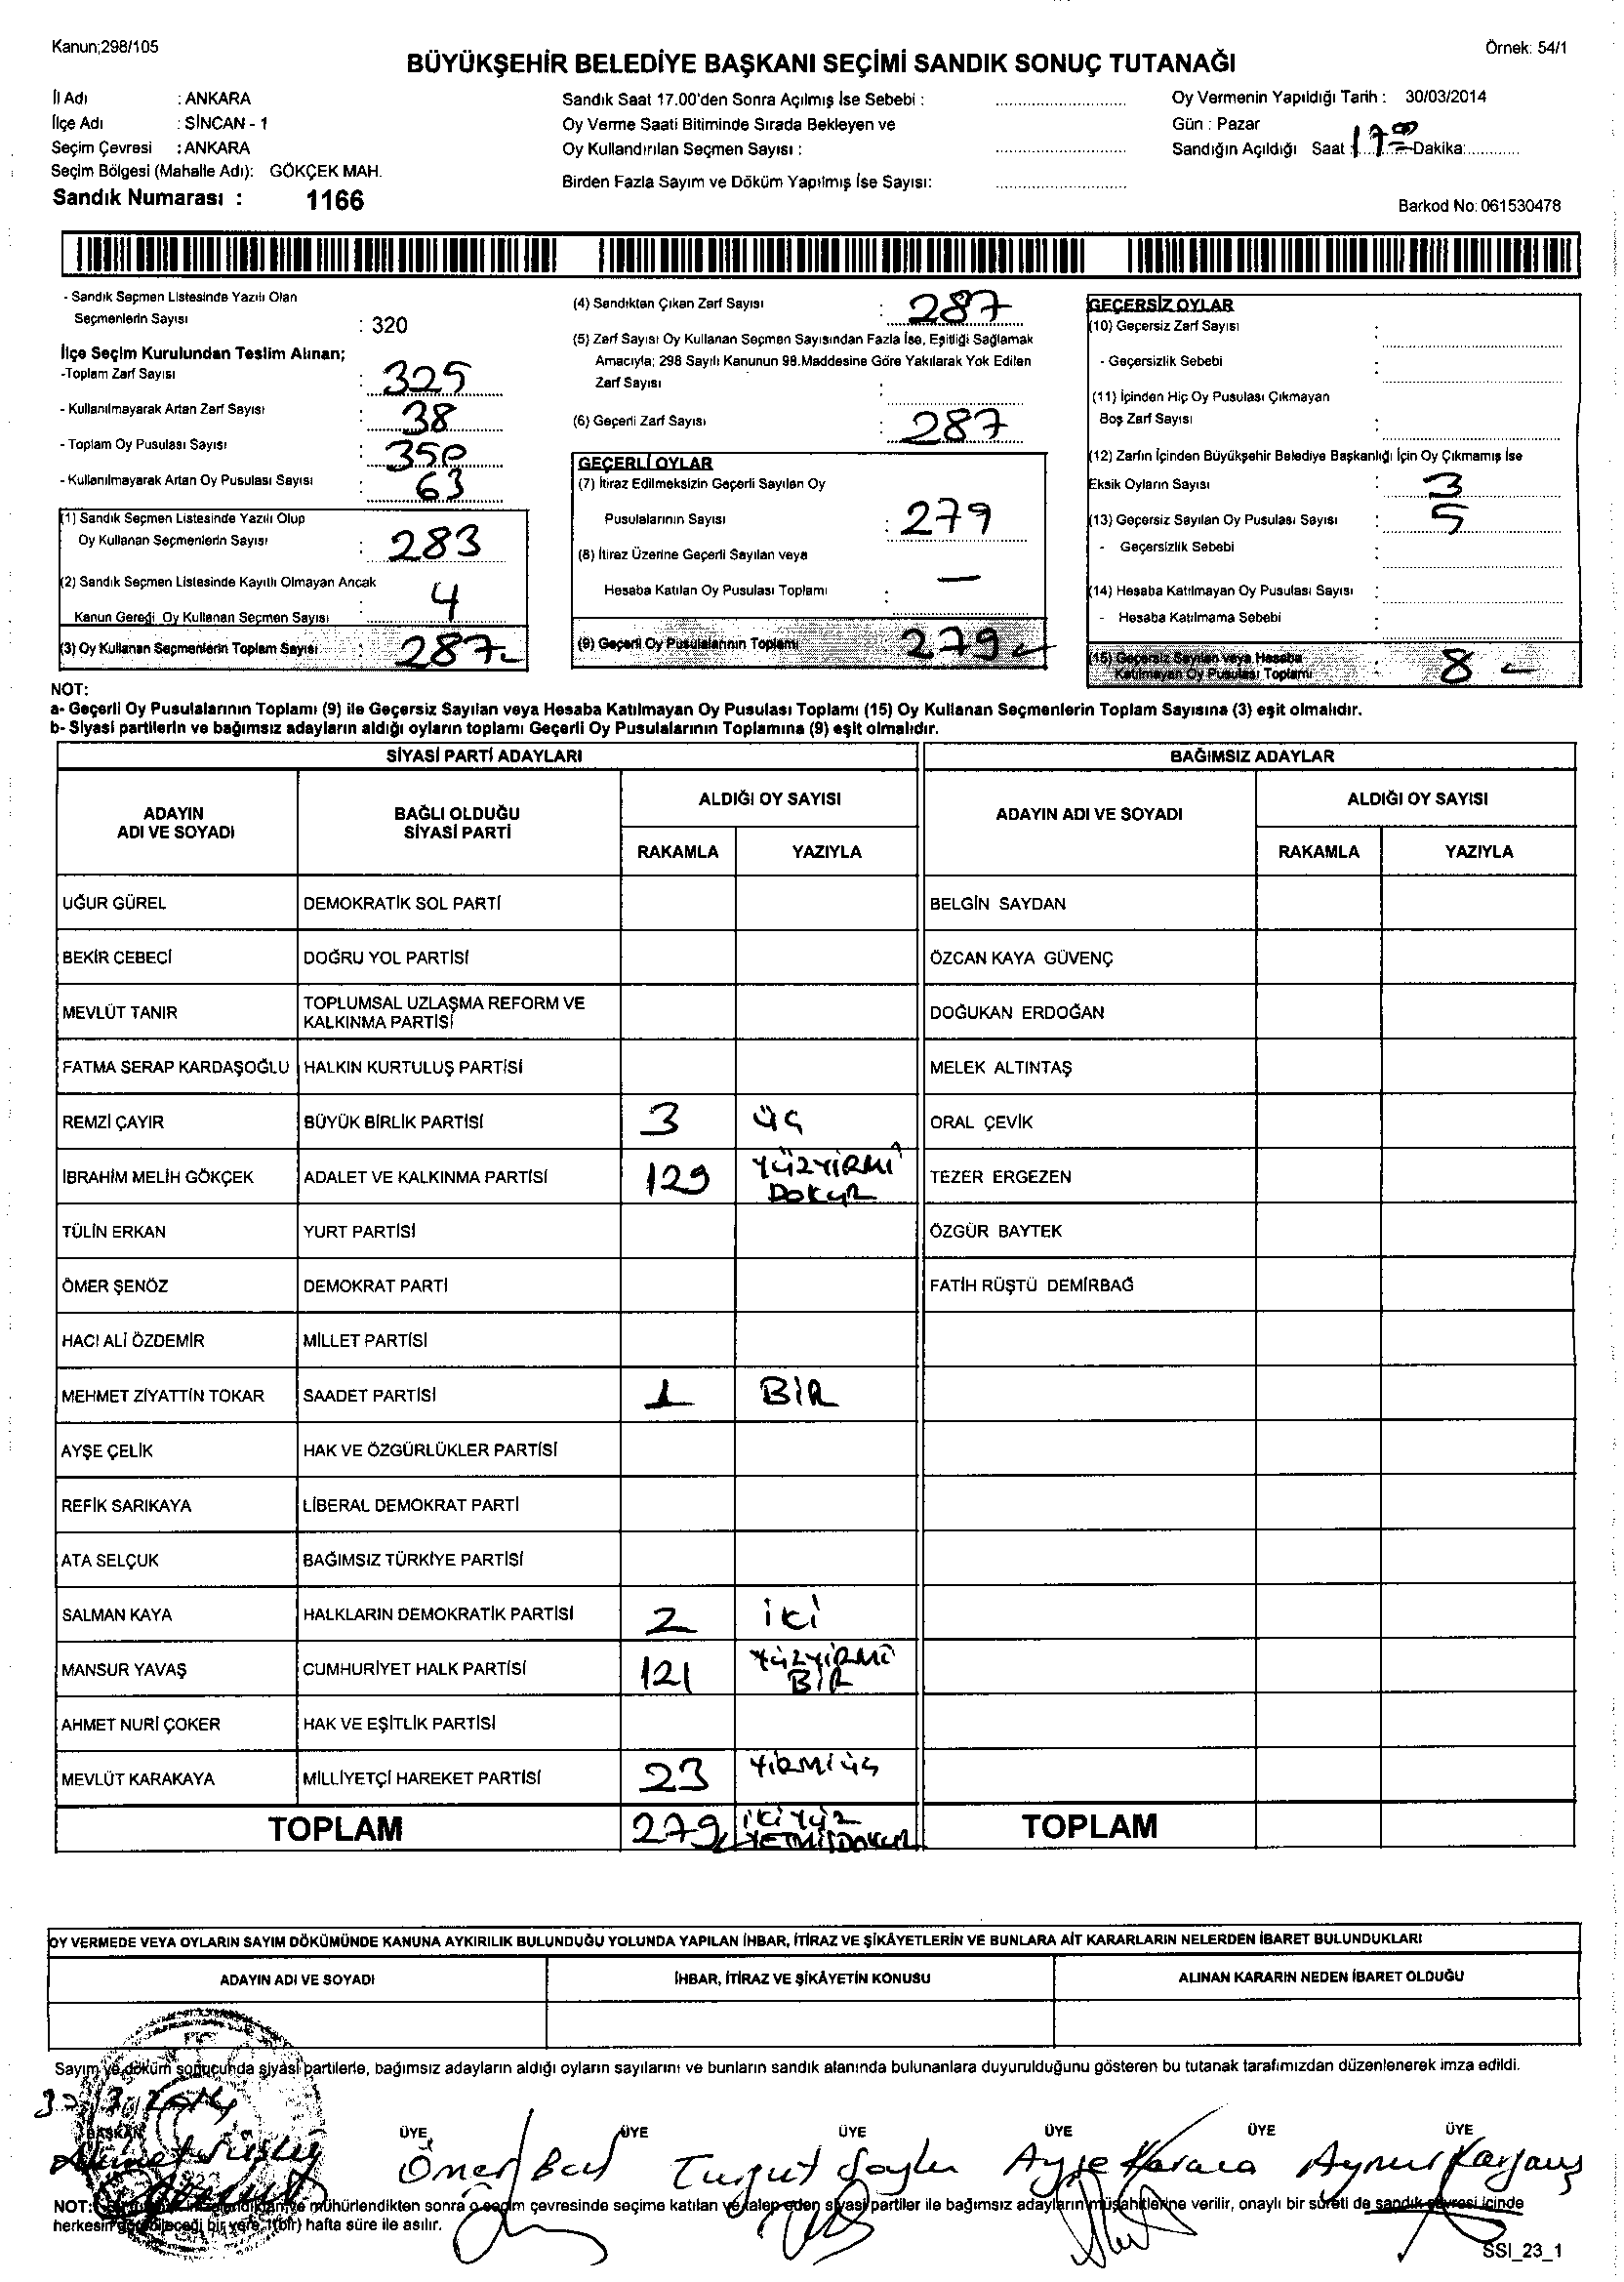 Kanun;298/105
Örnek: 54/1
BÜYÜKŞEHİR BELEDİYE BAŞKANI SEÇİMİ SANDIK SONUÇ TUTANAĞI
İl Adı : ANKARA
İlçe Adı : SİNCAN - 1
Seçim Çevresi : ANKARA
Seçim Bölgesi (Mahalle Adı): GÖKÇEK MAH.
Sandık Numarası : 1166
Sandık Saat 17.00'den Sonra Açılmış İse Sebebi :
Oy Verme Saati Bitiminde Sırada Bekleyen ve
Oy Kullandırılan Seçmen Sayısı :
Birden Fazla Sayım ve Döküm Yapılmış İse Sayısı:
Oy Vermenin Yapıldığı Tarih : 30/03/2014
Gün : Pazar
Sandığın Açıldığı Saat : 17 00 Dakika:
Barkod No: 061530478
- Sandık Seçmen Listesinde Yazılı Olan
Seçmenlerin Sayısı : 320
İlçe Seçim Kurulundan Teslim Alınan;
-Toplam Zarf Sayısı : 325
- Kullanılmayarak Artan Zarf Sayısı : 38
- Toplam Oy Pusulası Sayısı : 350
- Kullanılmayarak Artan Oy Pusulası Sayısı : 63
(1) Sandık Seçmen Listesinde Yazılı Olup
Oy Kullanan Seçmenlerin Sayısı : 283
(2) Sandık Seçmen Listesinde Kayıtlı Olmayan Ancak
Kanun Gereği Oy Kullanan Seçmen Sayısı : 4
(3) Oy Kullanan Seçmenlerin Toplam Sayısı : 287
(4) Sandıktan Çıkan Zarf Sayısı : 287
(5) Zarf Sayısı Oy Kullanan Seçmen Sayısından Fazla İse, Eşitliği Sağlamak
Amacıyla; 298 Sayılı Kanunun 98.Maddesine Göre Yakılarak Yok Edilen
Zarf Sayısı :
(6) Geçerli Zarf Sayısı : 287
GEÇERLİ OYLAR
(7) İtiraz Edilmeksizin Geçerli Sayılan Oy
Pusulalarının Sayısı : 279
(8) İtiraz Üzerine Geçerli Sayılan veya
Hesaba Katılan Oy Pusulası Toplamı : —
(9) Geçerli Oy Pusulalarının Toplamı 279
GEÇERSİZ OYLAR
(10) Geçersiz Zarf Sayısı :
- Geçersizlik Sebebi :
(11) İçinden Hiç Oy Pusulası Çıkmayan
Boş Zarf Sayısı :
(12) Zarfın İçinden Büyükşehir Belediye Başkanlığı İçin Oy Çıkmamış İse
Eksik Oyların Sayısı : 3
(13) Geçersiz Sayılan Oy Pusulası Sayısı : 5
- Geçersizlik Sebebi :
(14) Hesaba Katılmayan Oy Pusulası Sayısı :
- Hesaba Katılmama Sebebi :
(15) Geçersiz Sayılan veya Hesaba
Katılmayan Oy Pusulası Toplamı : 8
NOT:
a- Geçerli Oy Pusulalarının Toplamı (9) ile Geçersiz Sayılan veya Hesaba Katılmayan Oy Pusulası Toplamı (15) Oy Kullanan Seçmenlerin Toplam Sayısına (3) eşit olmalıdır.
b- Siyasi partilerin ve bağımsız adayların aldığı oyların toplamı Geçerli Oy Pusulalarının Toplamına (9) eşit olmalıdır.
SİYASİ PARTİ ADAYLARI
BAĞIMSIZ ADAYLAR
ADAYIN
ADI VE SOYADI
BAĞLI OLDUĞU
SİYASİ PARTİ
ALDIĞI OY SAYISI
RAKAMLA YAZIYLA
ADAYIN ADI VE SOYADI
ALDIĞI OY SAYISI
RAKAMLA YAZIYLA
UĞUR GÜREL DEMOKRATİK SOL PARTİ BELGİN SAYDAN
BEKİR CEBECİ DOĞRU YOL PARTİSİ ÖZCAN KAYA GÜVENÇ
MEVLÜT TANIR TOPLUMSAL UZLAŞMA REFORM VE
KALKINMA PARTİSİ DOĞUKAN ERDOĞAN
FATMA SERAP KARDAŞOĞLU HALKIN KURTULUŞ PARTİSİ MELEK ALTINTAŞ
REMZİ ÇAYIR BÜYÜK BİRLİK PARTİSİ 3 üç ORAL ÇEVİK
İBRAHİM MELİH GÖKÇEK ADALET VE KALKINMA PARTİSİ 129 YÜZYİRMİ
DOKUZ TEZER ERGEZEN
TÜLİN ERKAN YURT PARTİSİ ÖZGÜR BAYTEK
ÖMER ŞENÖZ DEMOKRAT PARTİ FATİH RÜŞTÜ DEMİRBAĞ
HACI ALİ ÖZDEMİR MİLLET PARTİSİ
MEHMET ZİYATTİN TOKAR SAADET PARTİSİ 1 BİR
AYŞE ÇELİK HAK VE ÖZGÜRLÜKLER PARTİSİ
REFİK SARIKAYA LİBERAL DEMOKRAT PARTİ
ATA SELÇUK BAĞIMSIZ TÜRKİYE PARTİSİ
SALMAN KAYA HALKLARIN DEMOKRATİK PARTİSİ 2 iki
MANSUR YAVAŞ CUMHURİYET HALK PARTİSİ 121 YÜZYİRMİ
BİR
AHMET NURİ ÇOKER HAK VE EŞİTLİK PARTİSİ
MEVLÜT KARAKAYA MİLLİYETÇİ HAREKET PARTİSİ 23 YİRMİüç
TOPLAM 279 İKİYÜZ
YETMİŞDOKUZ TOPLAM
OY VERMEDE VEYA OYLARIN SAYIM DÖKÜMÜNDE KANUNA AYKIRILIK BULUNDUĞU YOLUNDA YAPILAN İHBAR, İTİRAZ VE ŞİKÂYETLERİN VE BUNLARA AİT KARARLARIN NELERDEN İBARET BULUNDUKLARI
ADAYIN ADI VE SOYADI İHBAR, İTİRAZ VE ŞİKÂYETİN KONUSU ALINAN KARARIN NEDEN İBARET OLDUĞU
Sayım ve döküm sonucunda siyasi partilerle, bağımsız adayların aldığı oyların sayılarını ve bunların sandık alanında bulunanlara duyurulduğunu gösteren bu tutanak tarafımızdan düzenlenerek imza edildi.
30/3/2014
BAŞKAN ÜYE ÜYE ÜYE ÜYE ÜYE ÜYE
Ömer Turgut Ayşe Karaca Aynur
NOT: mühürlendikten sonra o seçim çevresinde seçime katılan ve talep eden siyasi partiler ile bağımsız adayların müşahitlerine verilir, onaylı bir sureti de sandık çevresi içinde
herkesin görebileceği bir yere 1(bir) hafta süre ile asılır.
SSI_23_1